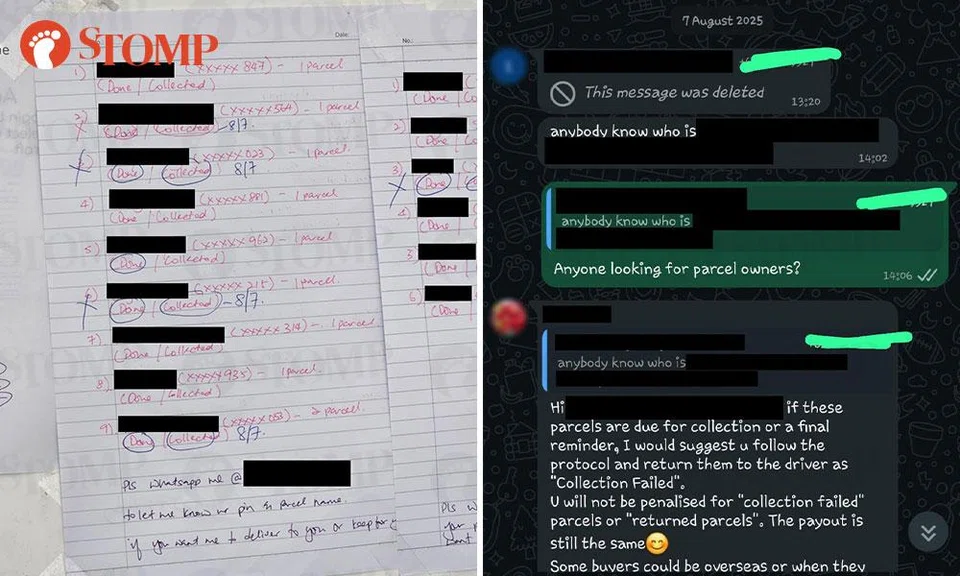 STOMP
Date:
No.:
1) (XXXXX 847) - 1 parcel
(Done / Collected)
2) (XXXXX 564) - 1 parcel
(Done / Collected) - 8/7.
(XXXXX 023) - 1 parcel
(Done / Collected) 8/7
4) (XXXXX 881) - 1 parcel
(Done / Collected)
5) (XXXXX 962) - 1 parcel
(Done / Collected)
6) (XXXXX 215) - 1 parcel
(Done / Collected) - 8/7
7) (XXXXX 314) - 1 parcel
(Done / Collected)
8) (XXXXX 935) - 1 parcel
(Done / Collected)
9) (XXXXX 053) - 2 parcel.
(Done / Collected) 8/7.
Pls whatsapp me @
to let me know ur pin & parcel name.
if you want me to deliver to you or keep for
1)
(Done
2)
(Done
3)
(Done
4)
(Done
(Done
6)
(Done
Pls w
7 August 2025
This message was deleted
13:20
anybody know who is
14:02
anybody know who is
Anyone looking for parcel owners?
14:06
anybody know who is
Hi if these
parcels are due for collection or a final
reminder, I would suggest u follow the
protocol and return them to the driver as
"Collection Failed".
U will not be penalised for "collection failed"
parcels or "returned parcels". The payout is
still the same😊
Some buyers could be overseas or when they